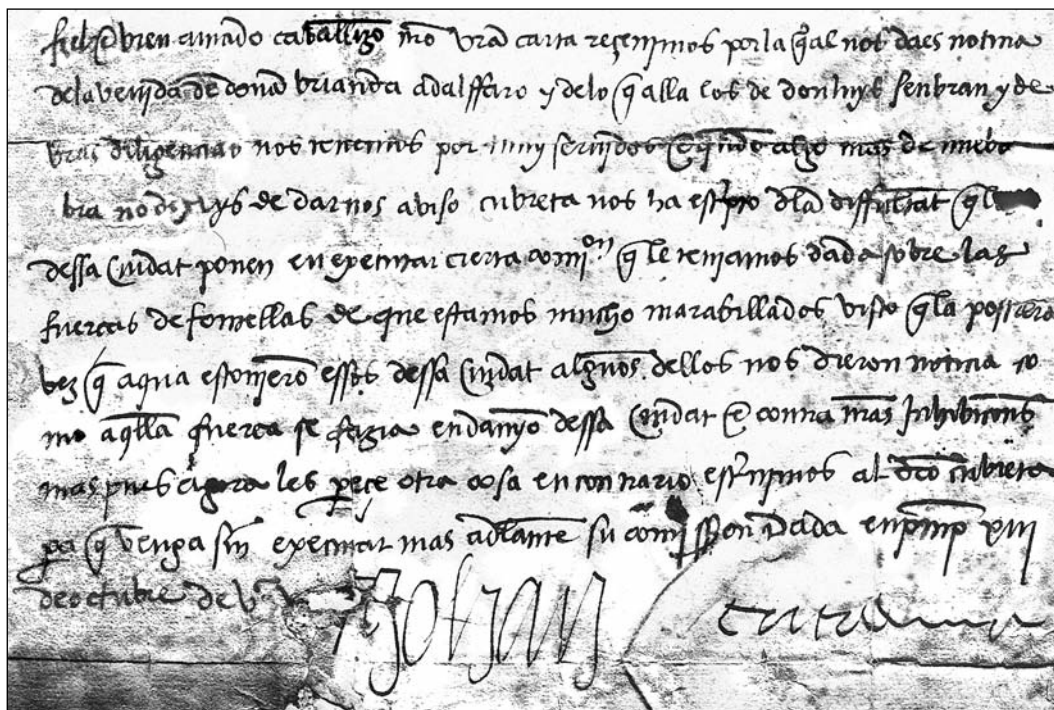 fiel & bien amado caballizo nro vra carta reçenimos por la qal nos daes noticia
dela venida de dona brianda ad alffaro y delo q alla los de don luys senbran y de
vras diligencias nos tenemos por muy seruidos & quando algo mas de nuebo
bra no dexeys de darnos abiso cubreta nos ha escripto dla difficultat q
dessa Ciudat ponen en executar cierta comion q le teniamos dada sobre las
fuercas de fomellas de que estamos mucho marabillados visto q la postrera
vez q aqua estouiero essos dessa Ciudat algunos dellos nos dieron noticia co
mo aqlla fuerca se fazia en danyo dessa Ciudat & contra nras Inhibiciones
mas pues agora les pece otra cosa en contrario escriuimos al dco cubreta
pa q venga sin executar mas adlante su comission Dada en pmp xiii
de octubre de